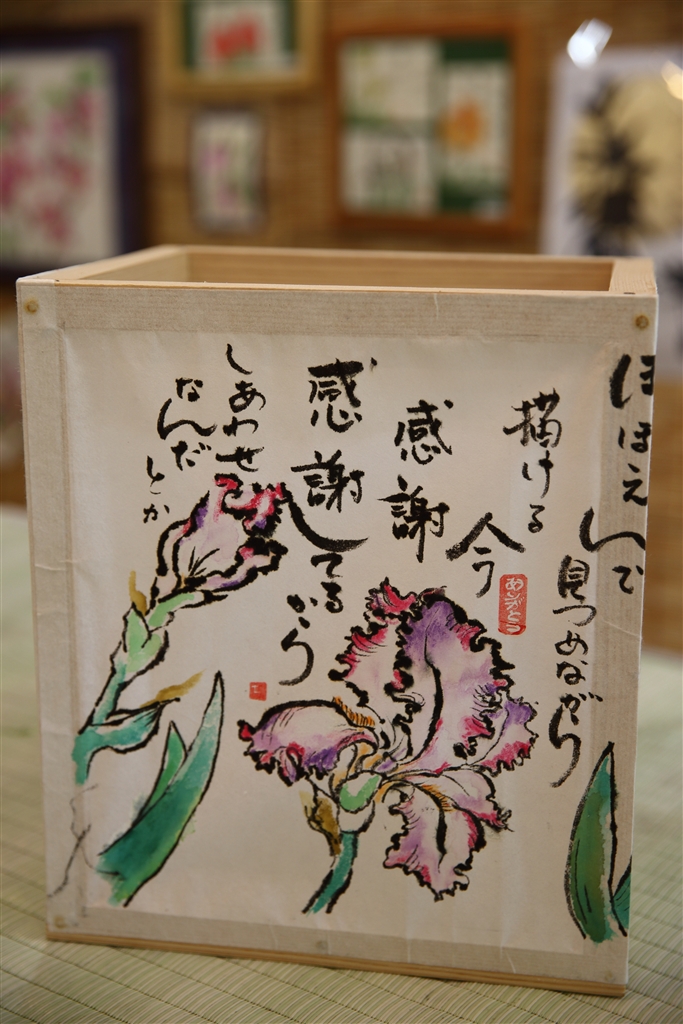 ほほえんで
見つめながら
描ける
今
感謝
感謝してるから
しあわせ
なんだ
とか
ありがとう